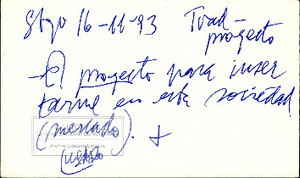 Stgo 16-11-93 Trad-
proyecto
- El proyecto para inser
tarme en esta sociedad
(mercado). +